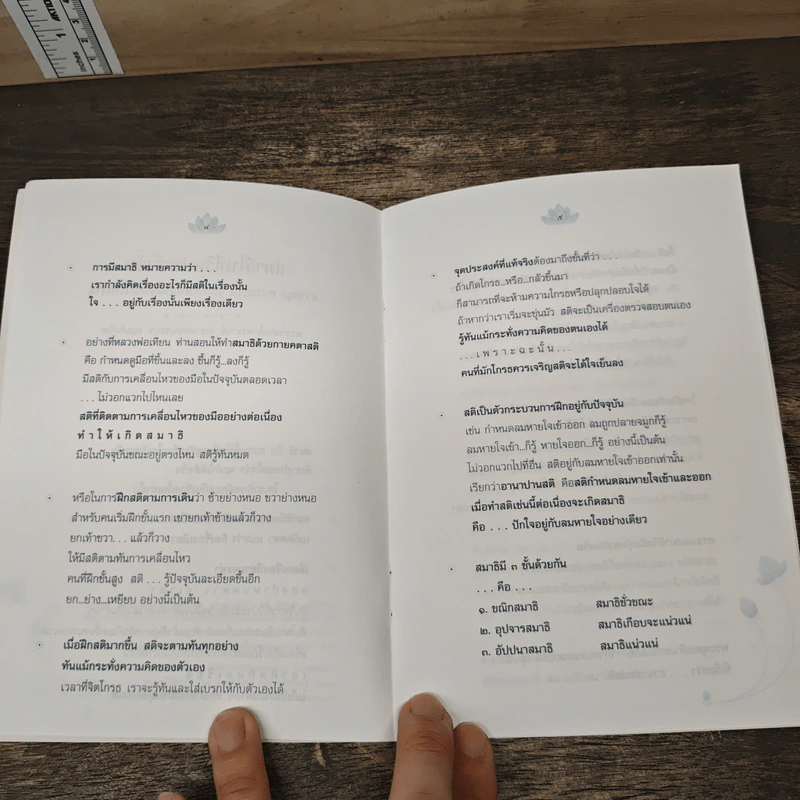 ๔
การมีสมาธิ หมายความว่า . . .
เรากำลังคิดเรื่องอะไรก็มีสติในเรื่องนั้น
ใจ . . . อยู่กับเรื่องนั้นเพียงเรื่องเดียว
อย่างที่หลวงพ่อเทียน ท่านสอนให้ทำสมาธิด้วยกายคตาสติ
คือ กำหนดดูมือที่ขึ้นและลง ขึ้นก็รู้...ลงก็รู้
มีสติกับการเคลื่อนไหวของมือในปัจจุบันตลอดเวลา
. . . ไม่วอกแวกไปไหนเลย
สติที่ติดตามการเคลื่อนไหวของมืออย่างต่อเนื่อง
ทำให้เกิดสมาธิ
มือในปัจจุบันขณะอยู่ตรงไหน สติรู้ทันหมด
หรือในการฝึกสติตามการเดินว่า ซ้ายย่างหนอ ขวาย่างหนอ
สำหรับคนเริ่มฝึกขั้นแรก เขายกเท้าซ้ายแล้วก็วาง
ยกเท้าขวา. . . แล้วก็วาง
ให้มีสติตามทันการเคลื่อนไหว
คนที่ฝึกขั้นสูง สติ . . . รู้ปัจจุบันละเอียดขึ้นอีก
ยก...ย่าง...เหยียบ อย่างนี้เป็นต้น
เมื่อฝึกสติมากขึ้น สติจะตามทันทุกอย่าง
ทันแม้กระทั่งความคิดของตัวเอง
เวลาที่จิตโกรธ เราจะรู้ทันและใส่เบรกให้กับตัวเองได้
๕
จุดประสงค์ที่แท้จริงต้องมาถึงขั้นที่ว่า . . .
ถ้าเกิดโกรธ...หรือ...กลัวขึ้นมา
ก็สามารถที่จะห้ามความโกรธหรือปลุกปลอบใจได้
ถ้าหากว่าเราเริ่มจะขุ่นมัว สติจะเป็นเครื่องตรวจสอบตนเอง
รู้ทันแม้กระทั่งความคิดของตนเองได้
. . . เพราะฉะนั้น . . .
คนที่มักโกรธควรเจริญสติจะได้ใจเย็นลง
สติเป็นตัวกระบวนการฝึกอยู่กับปัจจุบัน
เช่น กำหนดลมหายใจเข้าออก ลมถูกปลายจมูกก็รู้
ลมหายใจเข้า...ก็รู้ หายใจออก...ก็รู้ อย่างนี้เป็นต้น
ไม่วอกแวกไปที่อื่น สติอยู่กับลมหายใจเข้าออกเท่านั้น
เรียกว่าอานาปานสติ คือสติกำหนดลมหายใจเข้าและออก
เมื่อทำสติเช่นนี้ต่อเนื่องจะเกิดสมาธิ
คือ . . . ปักใจอยู่กับลมหายใจอย่างเดียว
สมาธิมี ๓ ขั้นด้วยกัน
. . . คือ . . .
๑. ขณิกสมาธิ สมาธิชั่วขณะ
๒. อุปจารสมาธิ สมาธิเกือบจะแน่วแน่
๓. อัปปนาสมาธิ สมาธิแน่วแน่